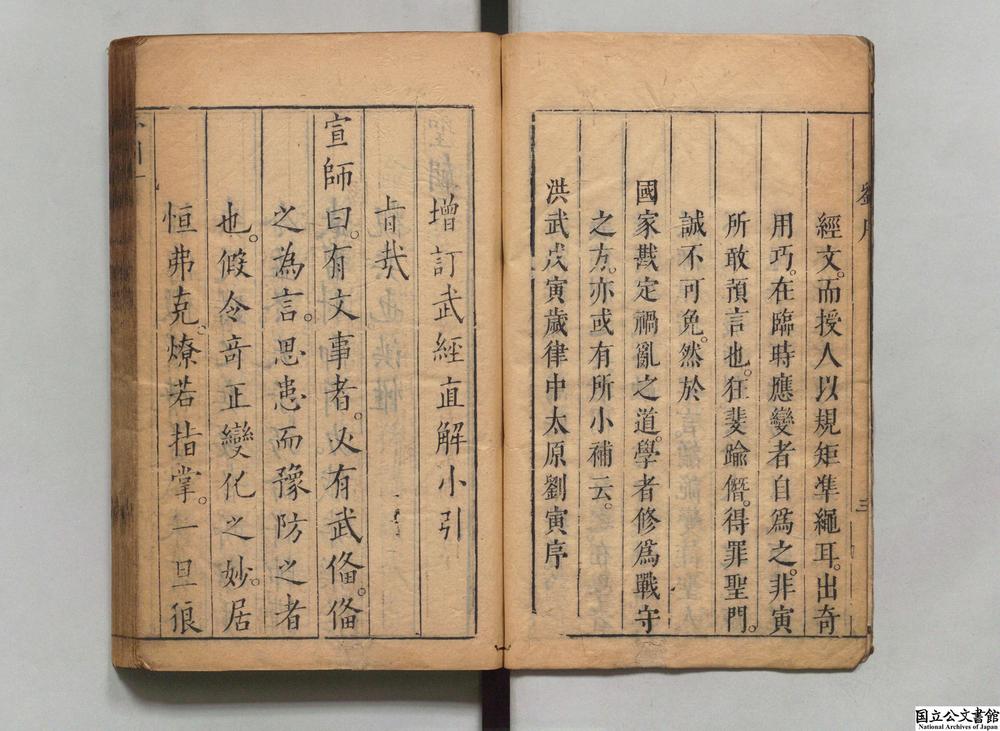 經文。而授人以規矩凖繩耳。出奇
用巧。在臨時應變者自爲之。非寅
所敢預言也。狂斐踰僭。得罪聖門。
誠不可免。然於
國家戡定禍亂之道。學者修爲戰守
之方。亦或有所小補云。
洪武戊寅歲律中太原劉寅序
三
增訂武經直解小引
旨哉
宣師曰。有文事者。必有武俻。俻
之為言。思患而豫防之者
也。假令竒正變化之妙。居
恒弗克。燎若指掌。一旦狼
国立公文書館
National Archives of Japan